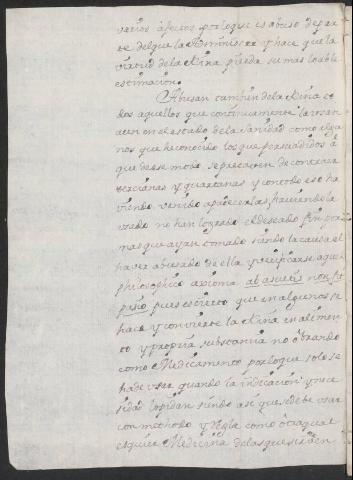 varios afectos por loque es abuso depar
te delque la Administra y hace que la
virtud dela Kina pierda su mas loable
estimacion.
Abusan tambien dela Kina to
dos aquellos que continuamente la usan
aun en el estado dela sanidad como algu
nos que he conocido los que persuadidos à
que de ese modo se precaven de contraer
tercianas y quartanas y con todo eso ha
viendo venido apadecerlas haviendola
usado no han logrado el deseado fin por
mas que ayan tomado siendo la causa el
haver abusado de ella y verificarse aquel
philosophico axioma ab asuetis non fit
pasio pues es cierto que en algunos se
hace y convierte la Kina en alimen
to y propria substancia no obrando
como Medicamento por loque solo se
hade usar quando la indicacion y nece
sidad lo pidan siendo asi que se debe usar
con methodo y regla como otra qual
esquiera Medicina delas que sirven